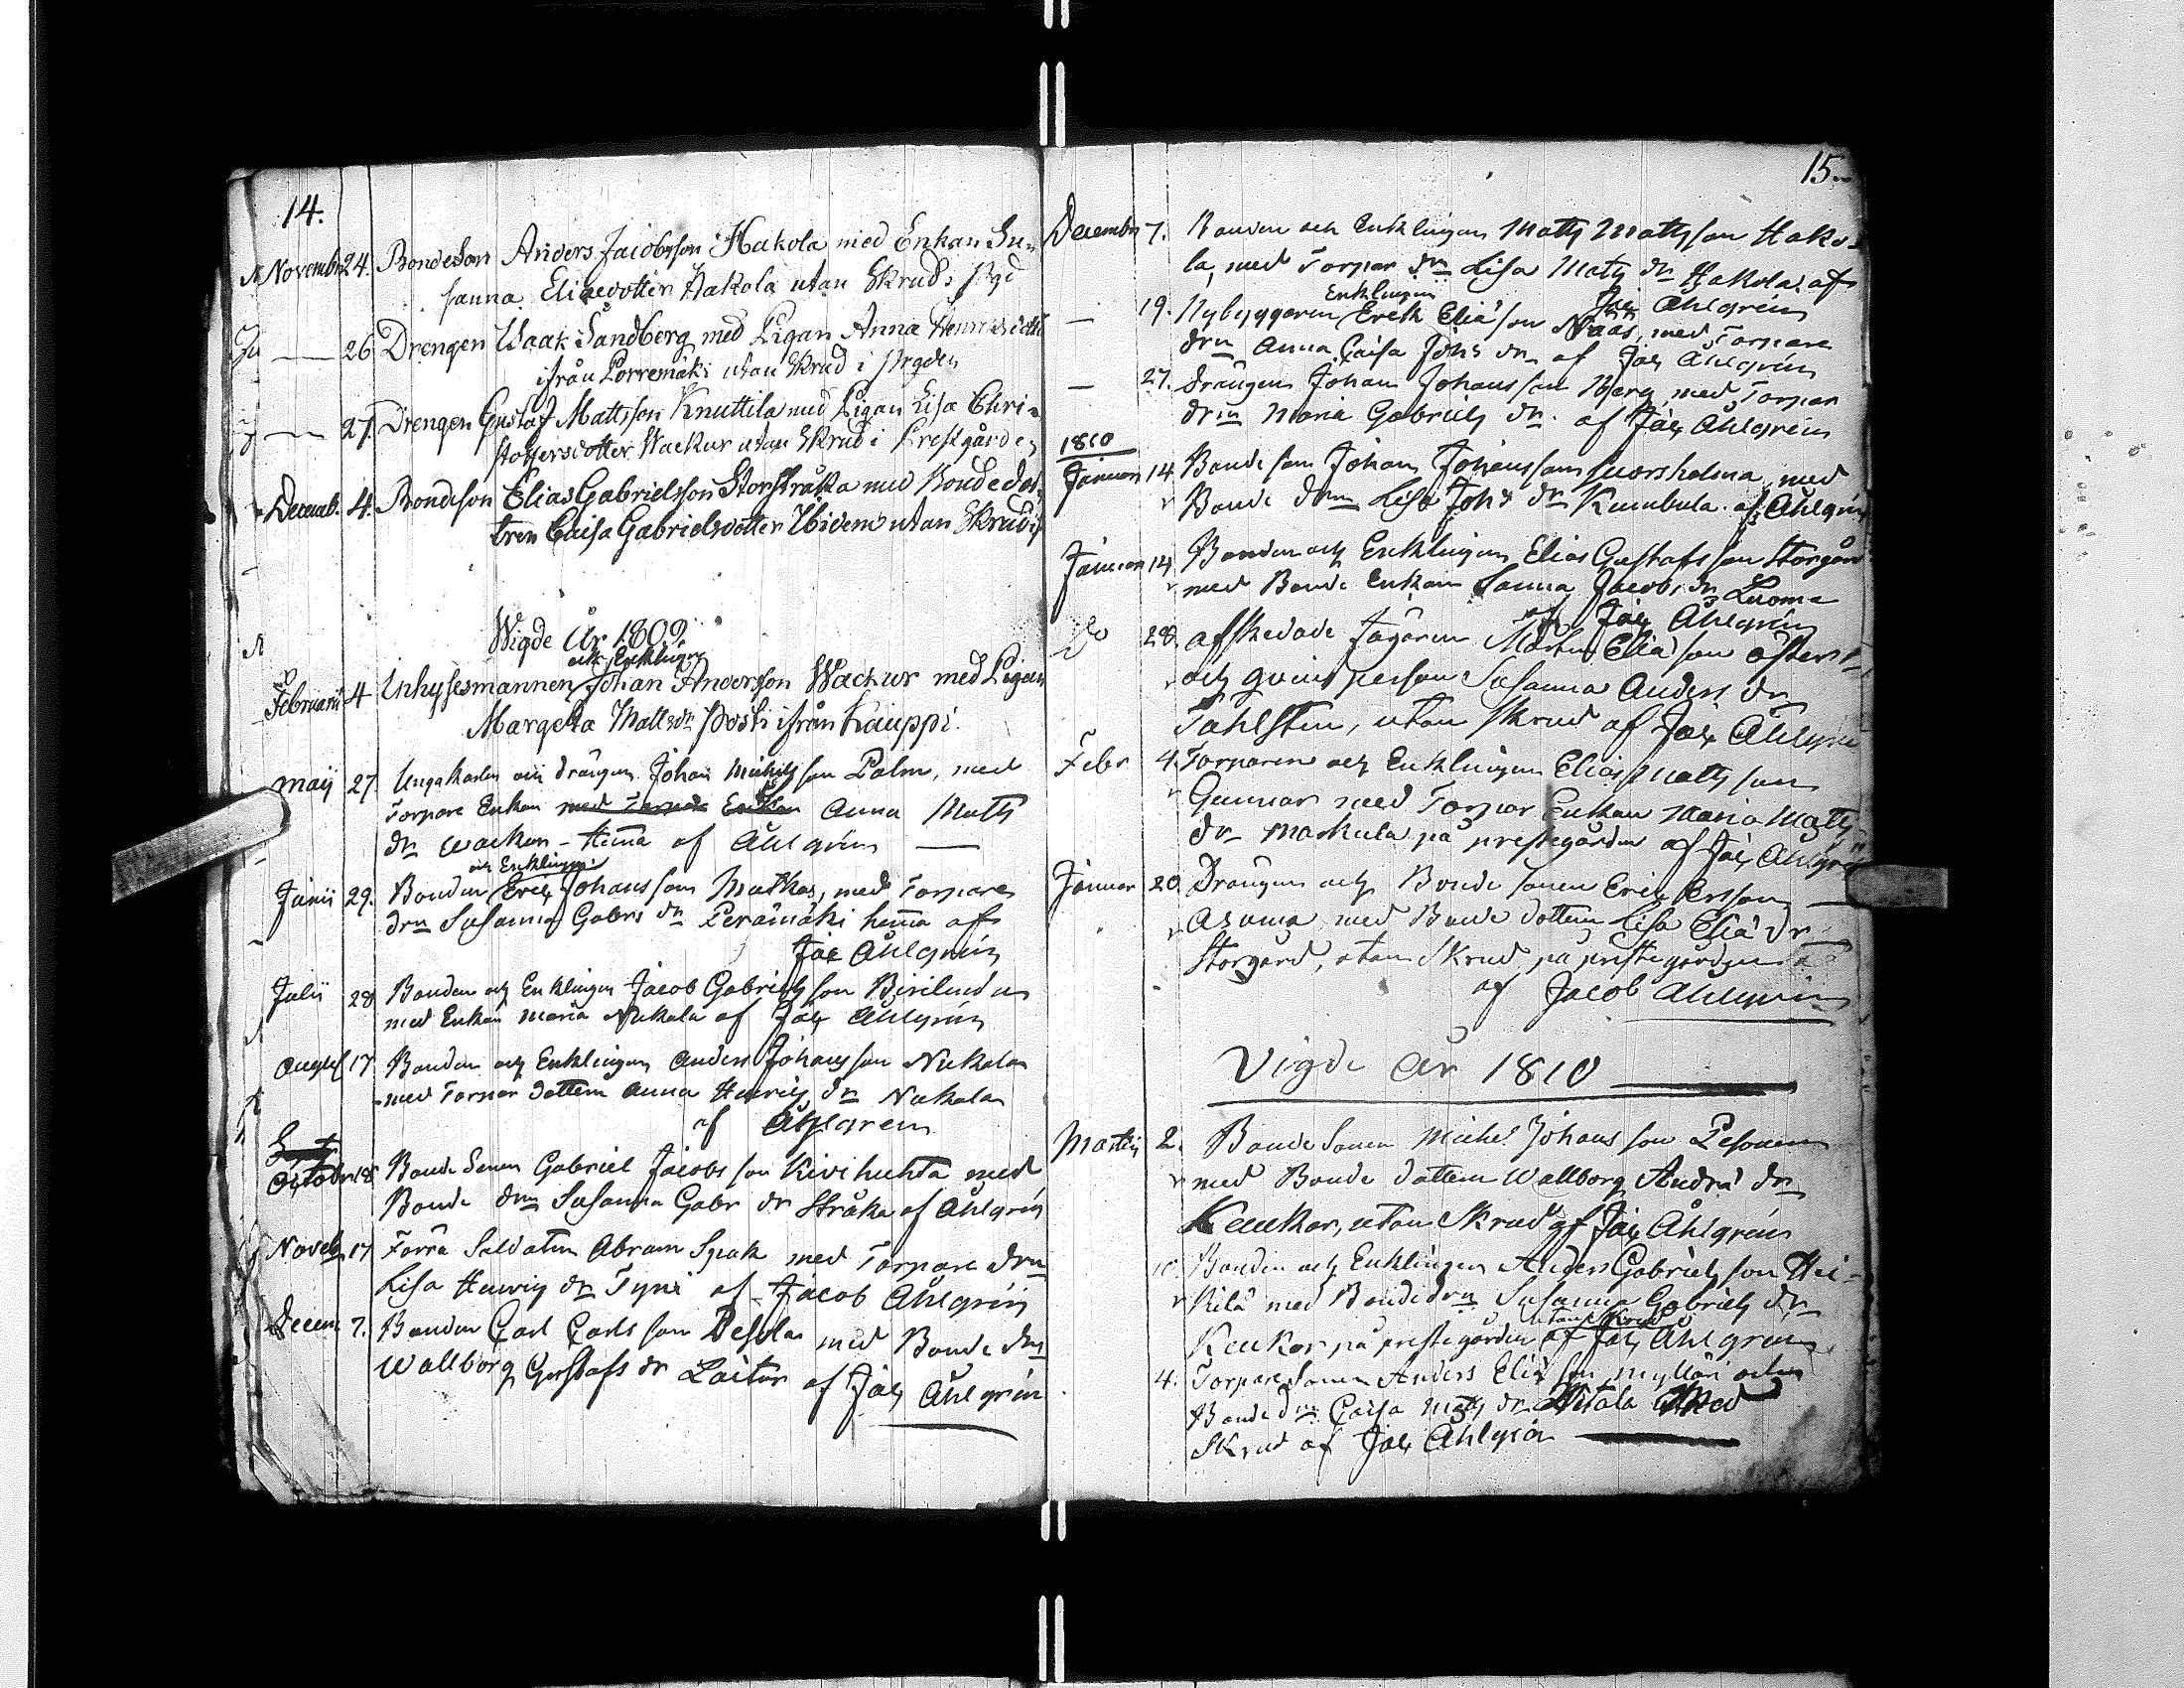 14.
Novembr 24. Bondeson Anders Jacobsson Hakola med Enkan Su-
sanna Eliædotter Hakola utan Skrud i Pgd
— 26 Drengen Isaak Sandberg med Pigan Anna Henriksdotter
ifrån Porremäki utan Skrud i Prgden
— 27. Drengen Gustaf Mattsson Knuttila med Pigan Lisa Chri-
stophersdotter Wackur utan Skrud i Prestgården
Decemb. 4. Bondeson Elias Gabrielsson Storstråka med Bondedot-
tren Caisa Gabrielsdotter Ibidem utan Skrud
Wigde År 1809.
och Enklingen
Februarii 4 Inhysesmannen Johan Andersson Wackur med Pigan
Margeta Mattsdr Posti ifrån Kauppi.
Maij 27 Ungakarlen och drängen Johan Michelsson Palm, med
Torpare Enkan med Torpare Enkan Anna Matts
dr Wackur - hema af Åhlgrén —
och Enklingen
Junii 29. Bonden Eric Johansson Matkas, med Torpare
drn Susanna Gabrs dr Perämäki hema af
Jac Åhlgrén
Julii 28 Bonden och Enklingen Jacob Gabrielsson
med Enkan Maria Nukala af Jac Åhlgrén
August 17 Bonden och Enklingen Anders Johansson Nukala
med Torpar dottern Anna Henrics dr Nukala
af Åhlgren
Octobr 18 Bonde Sonen Gabriel Jacobsson Kivihuhta med
Bonde drn Susanna Gabr dr Stråka af Åhlgrén
Novebr 17 Förra Soldaten Abram Spak med Torpare drn
Lisa Henrics dr Tyni af Jacob Åhlgrén
Decem 7. Bonden Carl Carlsson Pesola med Bonde drn
Wallborg Gustafs dr Laitur af Jac Åhlgrén
15.
Decembr 7. Bonden och Enklingen Matts Mattsson Hako-
la, med Torpar drn Lisa Matts dr Hakola af
Jac Åhlgrén
Enklingen
— 19. Nybyggaren Erik Eliæson Naas, med Torpare
drn Anna Caisa Johs dr af Jac Åhlgrén
— 27. Drängen Johan Johansson Berg, med Torpar
drn Maria Gabriels dr. af Jac Åhlgrén
1810
Januari 14 Bonde son Johan Johansson Suorsholma, med
Bonde drn Lisa Johs dr Kumbula af Åhlgrén
Januari 14 Bonden och Enklingen Elias Gustafsson Storgård
med Bonde Enkan Sanna Jacobs dr Luoma
af Jac Åhlgrén
28. afskedade Jägaren Mårten Eliæson Öster
och qvins person Susanna Anders dr
Tahlsten, utan skrud af Jac Åhlgrén
Febr 4. Torparen och Enklingen Elias Mattsson
Gunnar med Torpar Enkan Maria Matts
dr Markula på prestegården af Jac Åhlgrén
Januar 20. Drängen och Bonde sonen Eric Ersson —
Asuma, med Bonde dottern Lisa Eliæ dr
Storgård, utan Skrud på prestegården
af Jacob Åhlgrén
Vigde år 1810
Martij 2. Bonde Sonen Michel Johansson Pesonen
med Bonde dottern Wallborg Andræ dr
Keukor, utan Skrud af Jac Åhlgrén
10. Bonden och Enklingen Anders Gabrielsson Hei-
kilä med Bonde drn Susanna Gabriels dr
utan Skrud
Keukor på prestegården af Jac Åhlgren
4. Torpare Sonen Anders Eliæson Mylläri och
Bonde drn Caisa Matts dr Hitola Med
Skrud af Jac Åhlgrén —